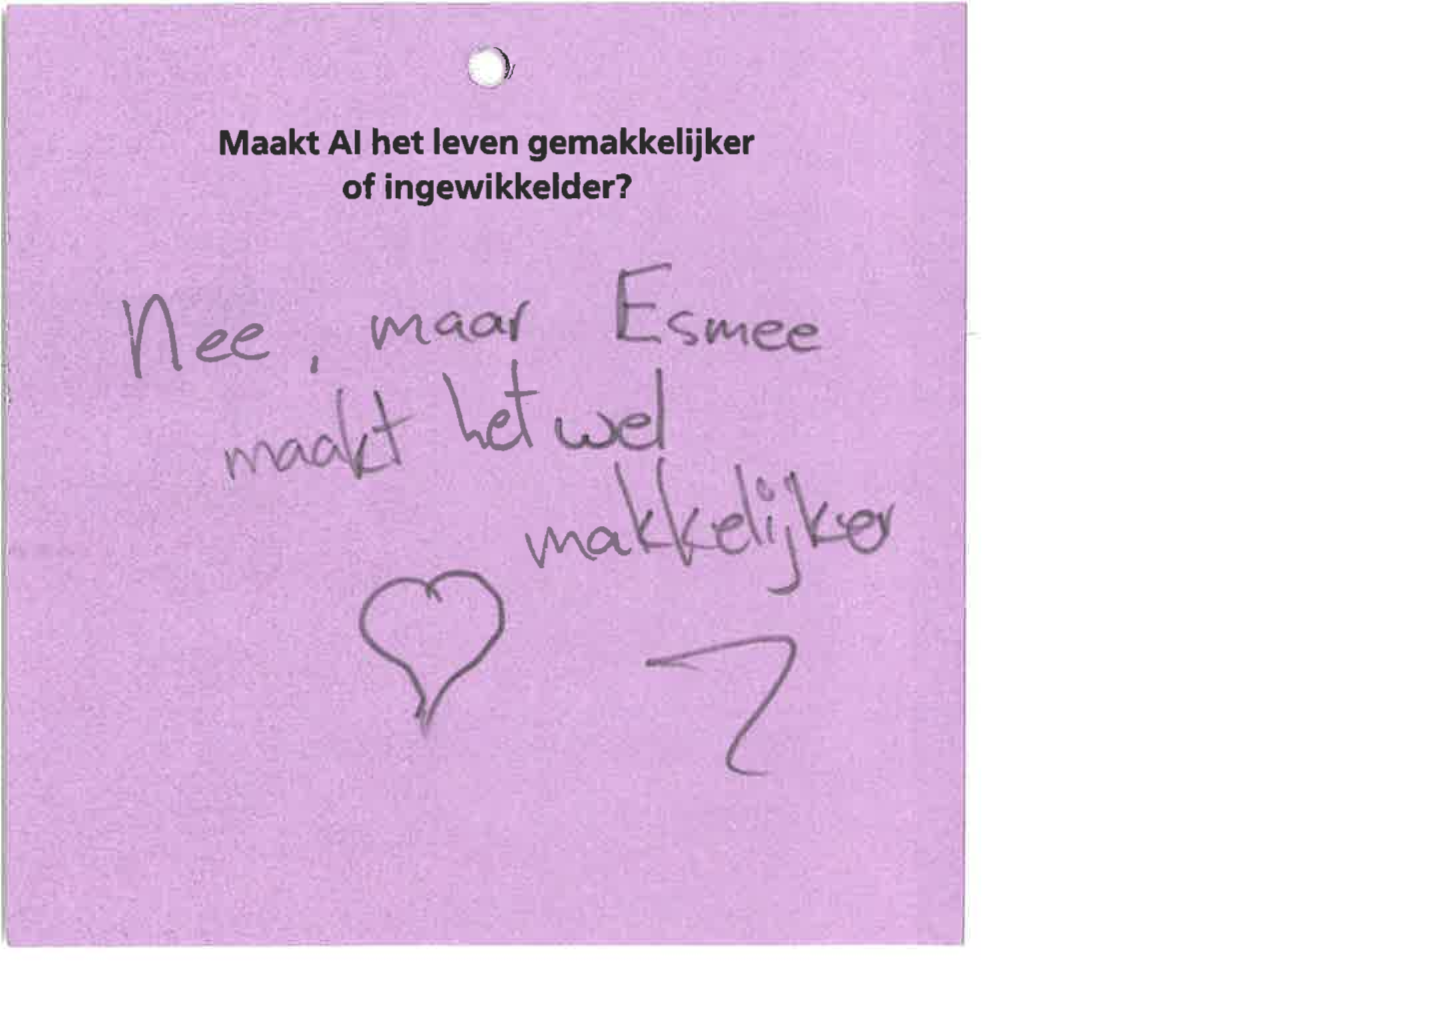 Maakt AI het leven gemakkelijker
of ingewikkelder?
Nee, maar Esmee
maakt het wel
makkelijker